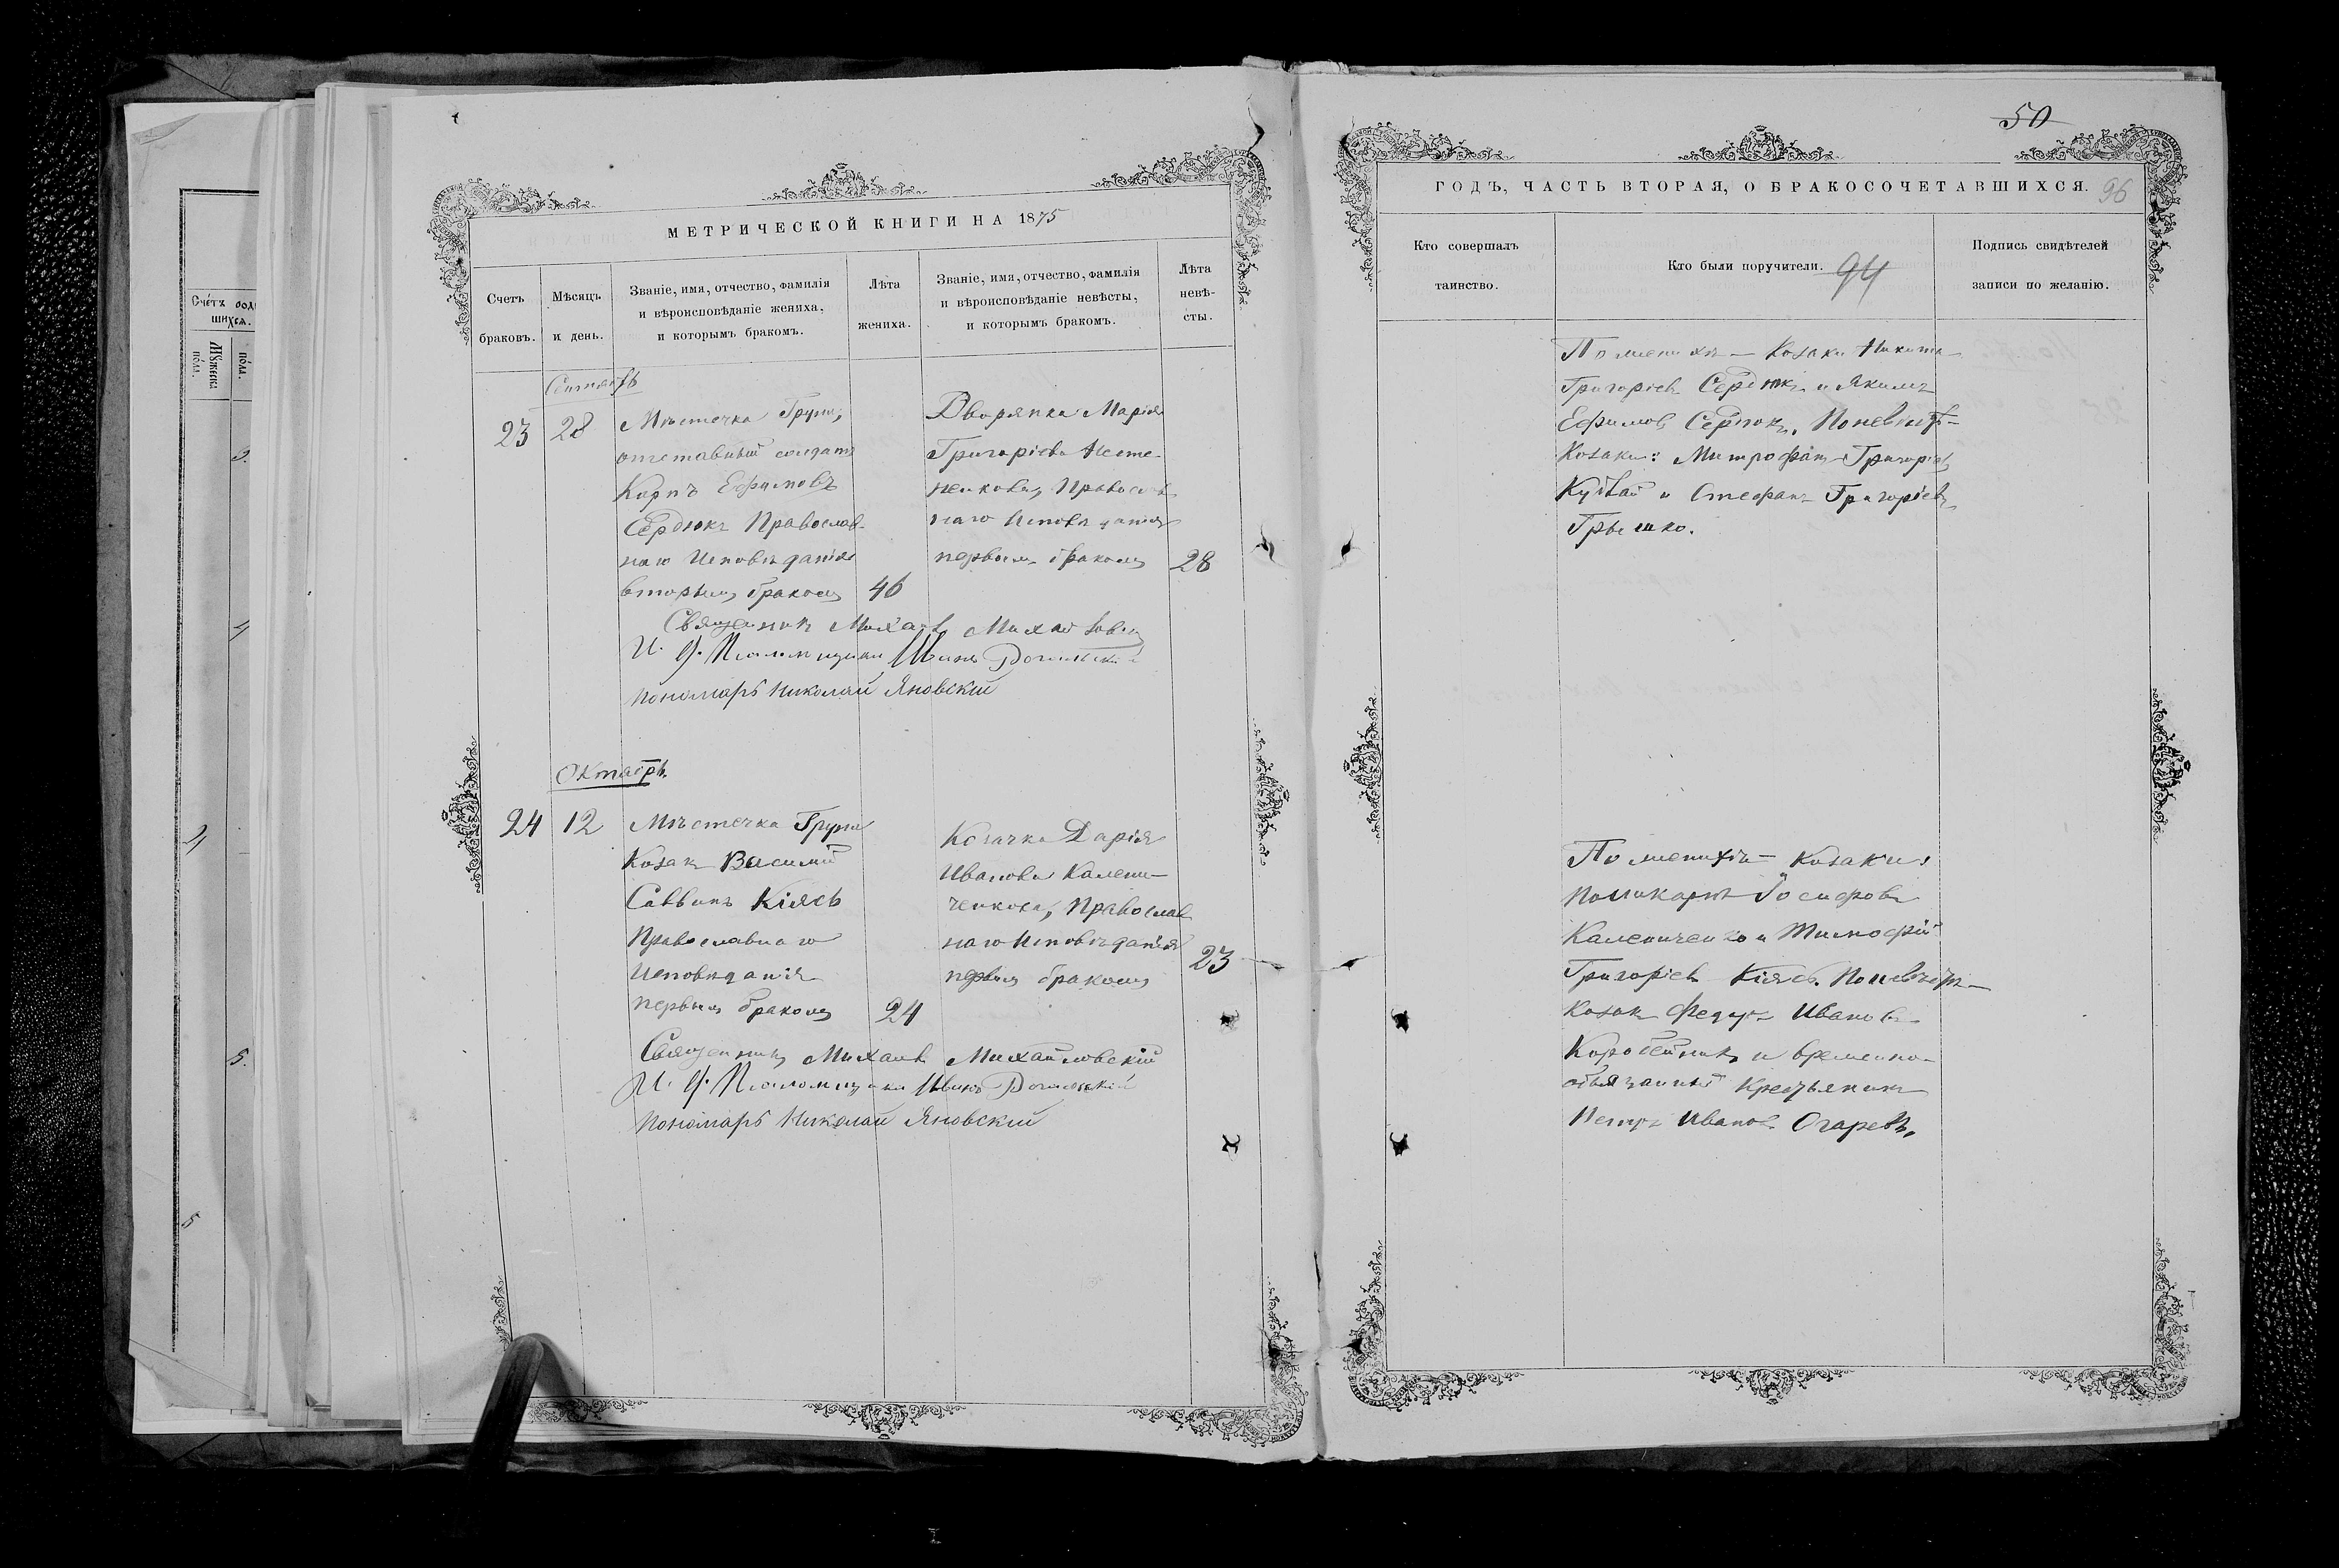 МЕТРИЧЕСКОЙ КНИГИ НА 1875
Счетъ браковъ.
Мѣсяцъ и день.
Званіе, имя, отчество, фамилія и вѣроисповѣданіе жениха, и которымъ бракомъ.
Лѣта жениха.
Званіе, имя, отчество, фамилія и вѣроисповѣданіе невѣсты, и которымъ бракомъ.
Лѣта невѣ-сты.
Сентябрь
23
28
Мѣстечка Груни,
отставный солдатъ
Карпъ Ефимовъ
Сердюкъ Православ-
наго Исповѣданія
вторымъ бракомъ
46
Дворянка Марія
Григоріева Несте-
ренкова, Православ
наго Исповѣданія
первымъ бракомъ
28
Священникъ Михаилъ Михайловскій
И. д. Псаломщика Иванъ
Пономарь Николай Яновскій
Октябрь
24
12
Мѣстечка Груни
Козакъ Василій
Саввинъ Кіясь
Православнаго
Исповѣданія
первымъ бракомъ
24
Козачка Дарія
Иванова Калени-
ченкова, Православ
наго Исповѣданія
первымъ бракомъ
23
Священникъ Михаилъ Михайловскій
И. д. Псаломщика Иванъ
Пономарь Николай Яновскій
50
ГОДЪ, ЧАСТЬ ВТОРАЯ, О БРАКОСОЧЕТАВШИХСЯ.
96
Кто совершалъ таинство.
Кто были поручители.
94
Подпись свидѣтелей записи по желанію.
По женихѣ — Козаки Никита
Григоріевъ Сердюкъ и Якимъ
Ефимовъ Сердюкъ. По невѣстѣ —
Козаки: Митрофанъ Григоріевъ
и Стефанъ Григоріевъ
Грышко.
По женихѣ — Козаки:
Поликарпъ Іосифовъ
Калениченко и Тимофій
Григоріевъ Кіясь. По невѣстѣ —
Козакъ Федоръ Ивановъ
Коробейникъ и временно-
обязанный Крестьянинъ
Петръ Ивановъ Огаревъ.
Счетъ
шихся.
Мужеска полъ.
полъ.
3.
4
4
5.
5